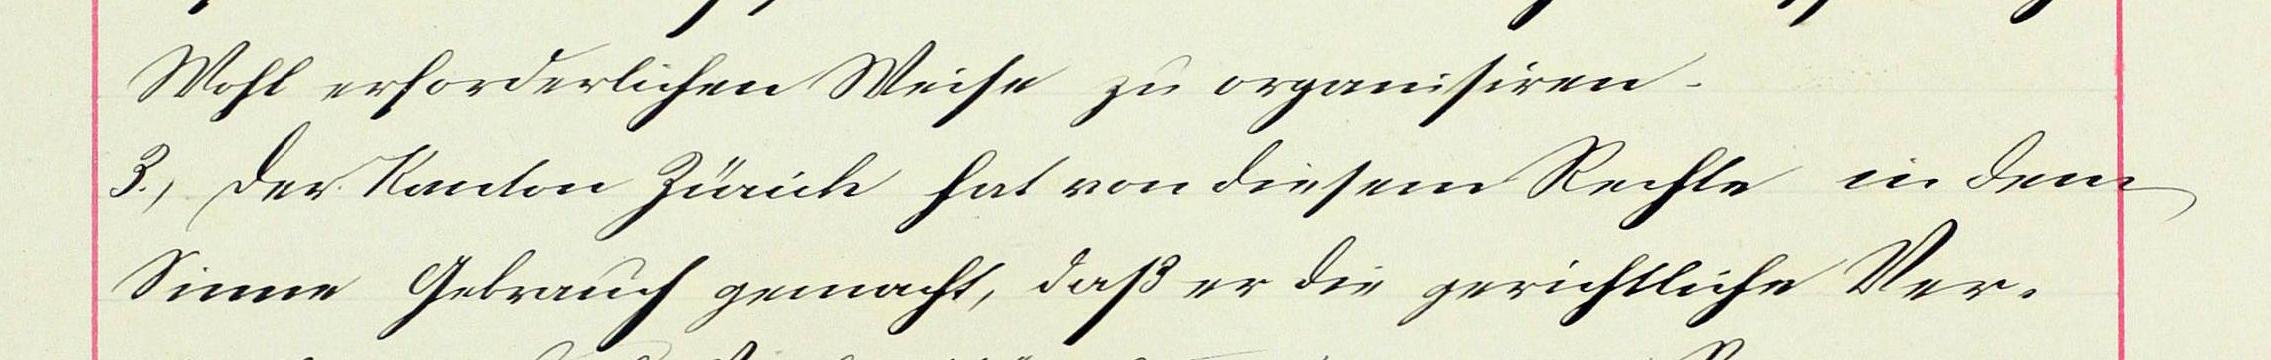 Wohl erforderlichen Weise zu organisiren.
3., Der Kanton Zürich hat von diesem Rechte in dem
Sinne Gebrauch gemacht, daß er die gerichtliche Ver-